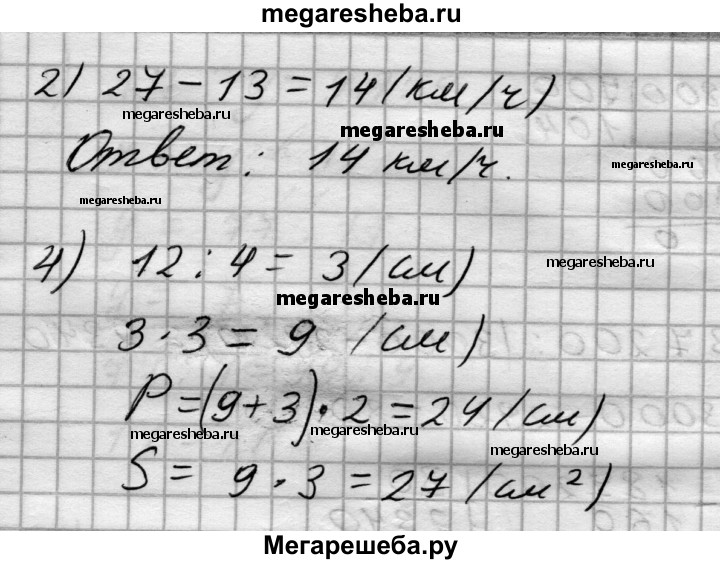 megaresheba.ru
2) 27 - 13 = 14 (км/ч)
megaresheba.ru
megaresheba.ru
Ответ: 14 км/ч.
megaresheba.ru
megaresheba.ru
4) 12 : 4 = 3 (см)
megaresheba.ru
megaresheba.ru
3 · 3 = 9 (см)
P = (9 + 3) · 2 = 24 (см)
megaresheba.ru
megaresheba.ru
megaresheba.ru
S = 9 · 3 = 27 (см²)
Мегарешеба.ру